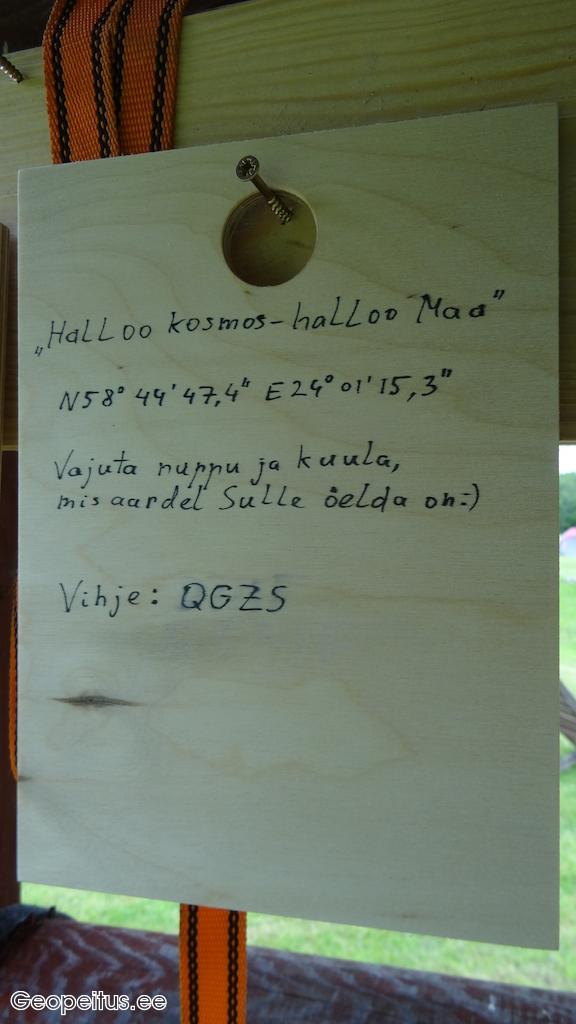 „Halloo kosmos-halloo Maa"
N58° 44' 47,4" E24° 01' 15,3"
Vajuta nuppu ja kuula,
mis aardel Sulle öelda on:)
Vihje: QGZS
Geopeitus.ee